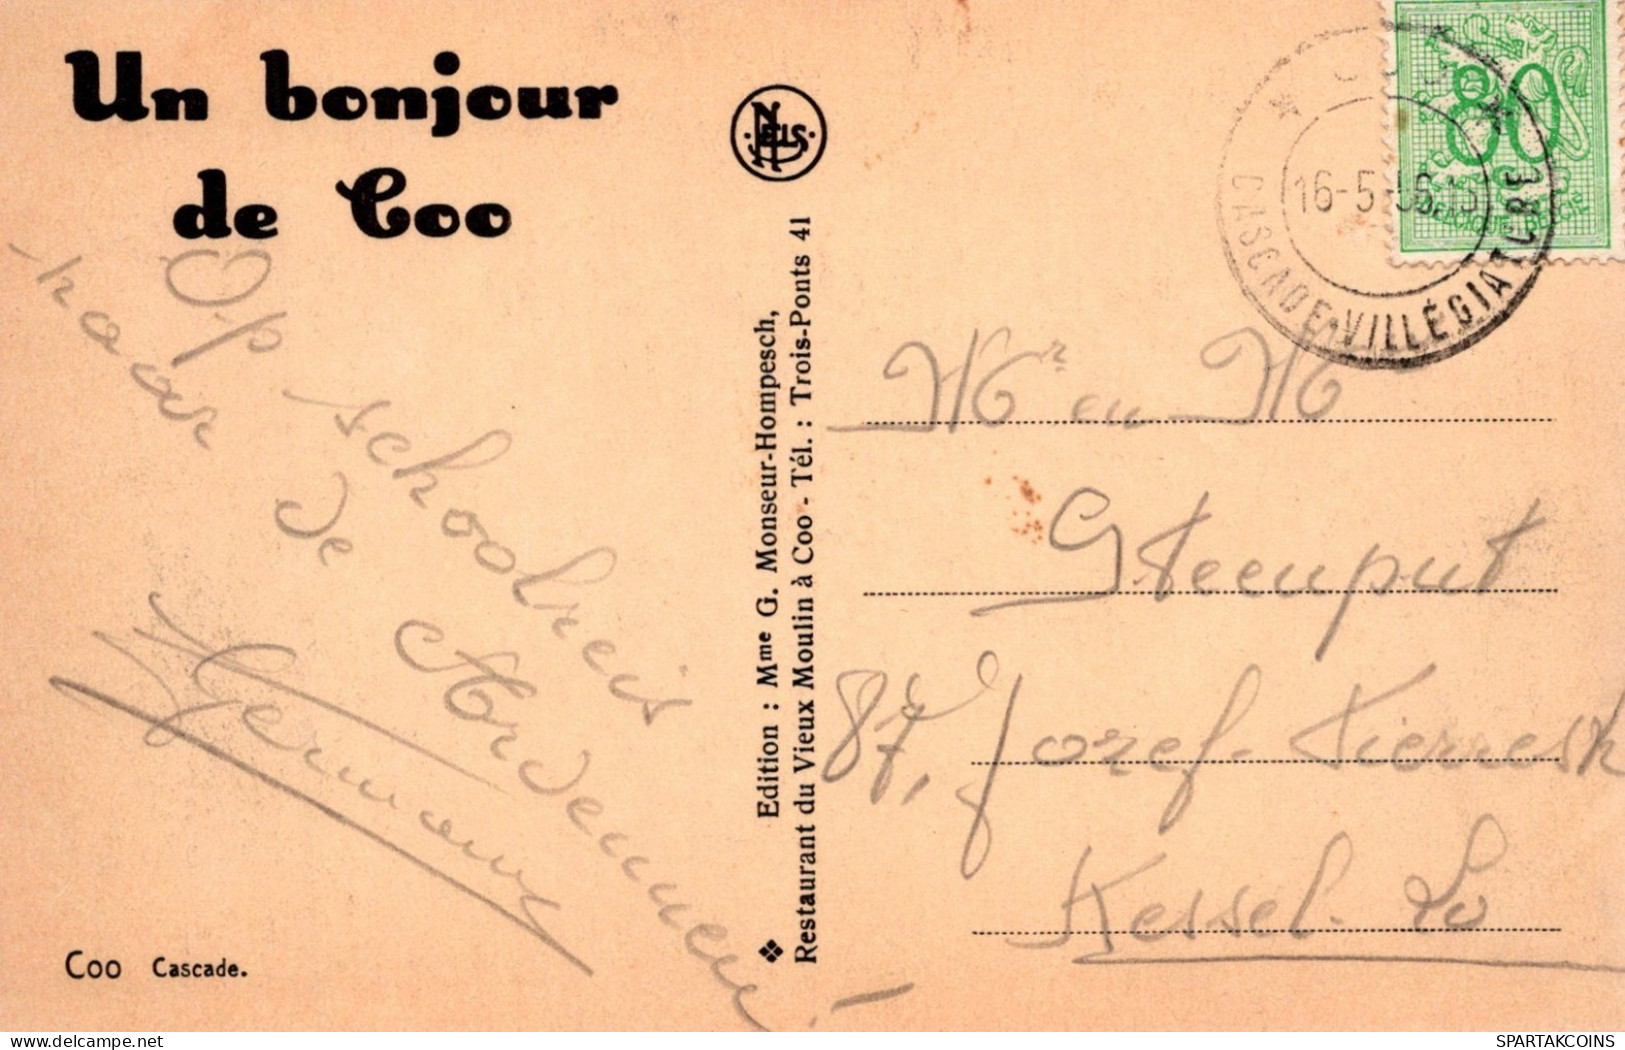 Un bonjour
de Coo
Op schoolreis
naar de Ardennen!
Germaine
Coo Cascade.
Edition : Mme G. Monseur-Hompesch,
❖ Restaurant du Vieux Moulin à Coo - Tél. : Trois-Ponts 41
NELS
* COO *
16-5-56.15
CASCADE-VILLÉGIATURE
80
BELGIQUE-BELGIE
Mr en M
Steenput
87, Jozef Pierrestr
Kessel-Lo
SPARTAKCOINS